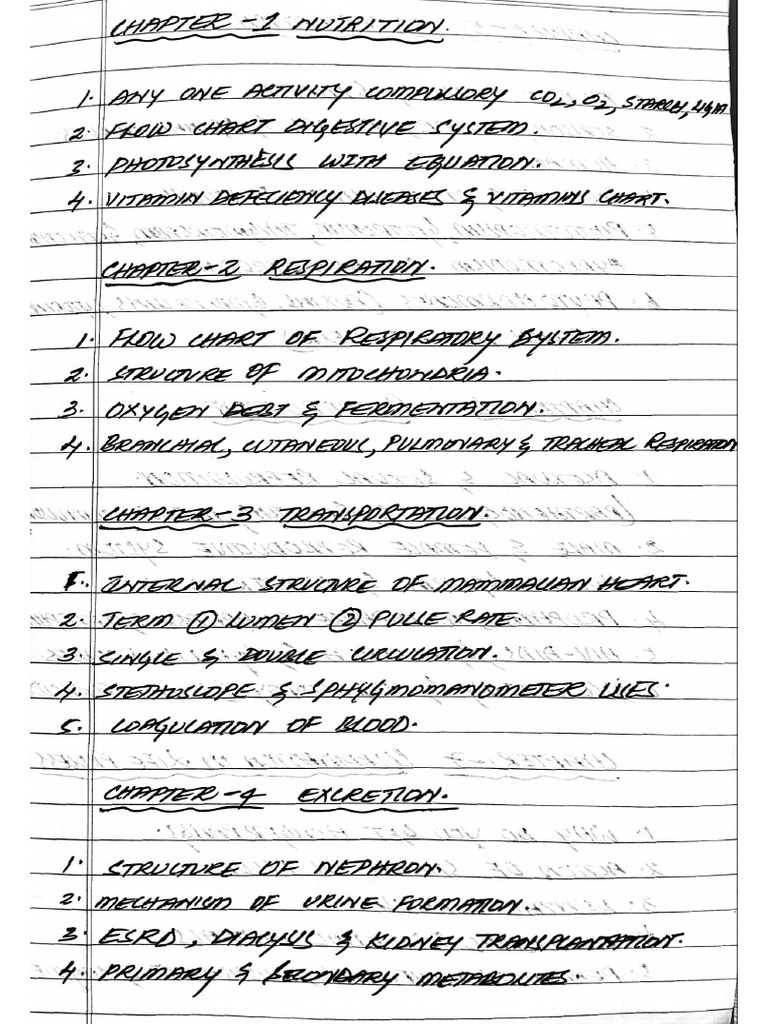 CHAPTER - 1 NUTRITION.
1. ANY ONE ACTIVITY COMPULSORY CO2, O2, STARCH, LIGHT
2. FLOW CHART DIGESTIVE SYSTEM.
3. PHOTOSYNTHESIS WITH EQUATION.
4. VITAMIN DEFICIENCY DISEASES & VITAMINS CHART.
CHAPTER-2 RESPIRATION.
1. FLOW CHART OF RESPIRATORY SYSTEM.
2. STRUCTURE OF MITOCHONDRIA.
3. OXYGEN DEBT & FERMENTATION.
4. BRANCHIAL, CUTANEOUS, PULMONARY & TRACHEAL RESPIRATION
CHAPTER-3 TRANSPORTATION.
1. INTERNAL STRUCTURE OF MAMMALIAN HEART.
2. TERM ① LUMEN ② PULSE RATE.
3. SINGLE & DOUBLE CIRCULATION.
4. STETHOSCOPE & SPHYGMOMANOMETER USES.
5. COAGULATION OF BLOOD.
CHAPTER-4 EXCRETION.
1. STRUCTURE OF NEPHRON.
2. MECHANISM OF URINE FORMATION.
3. ESRD, DIALYSIS & KIDNEY TRANSPLANTATION.
4. PRIMARY & SECONDARY METABOLITES.